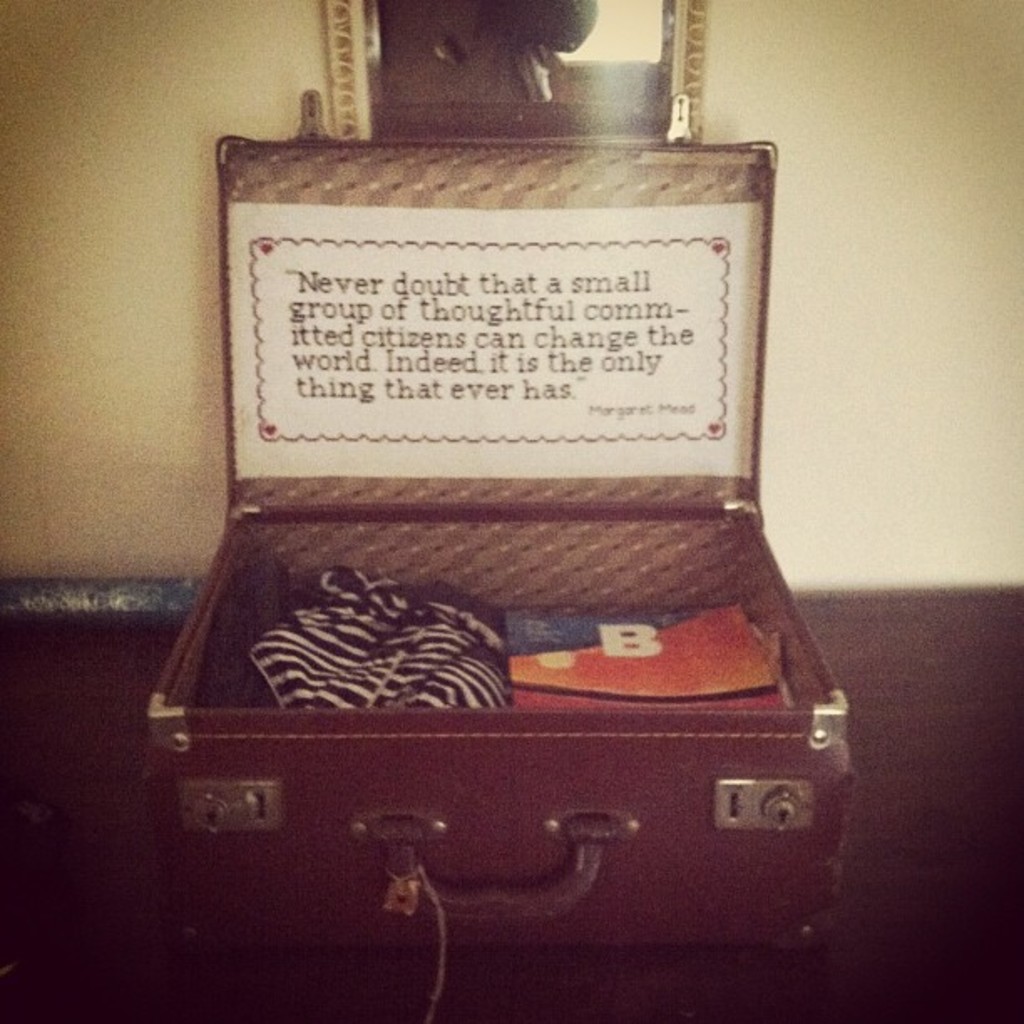 "Never doubt that a small
group of thoughtful comm-
itted citizens can change the
world. Indeed, it is the only
thing that ever has."
Margaret Mead
B